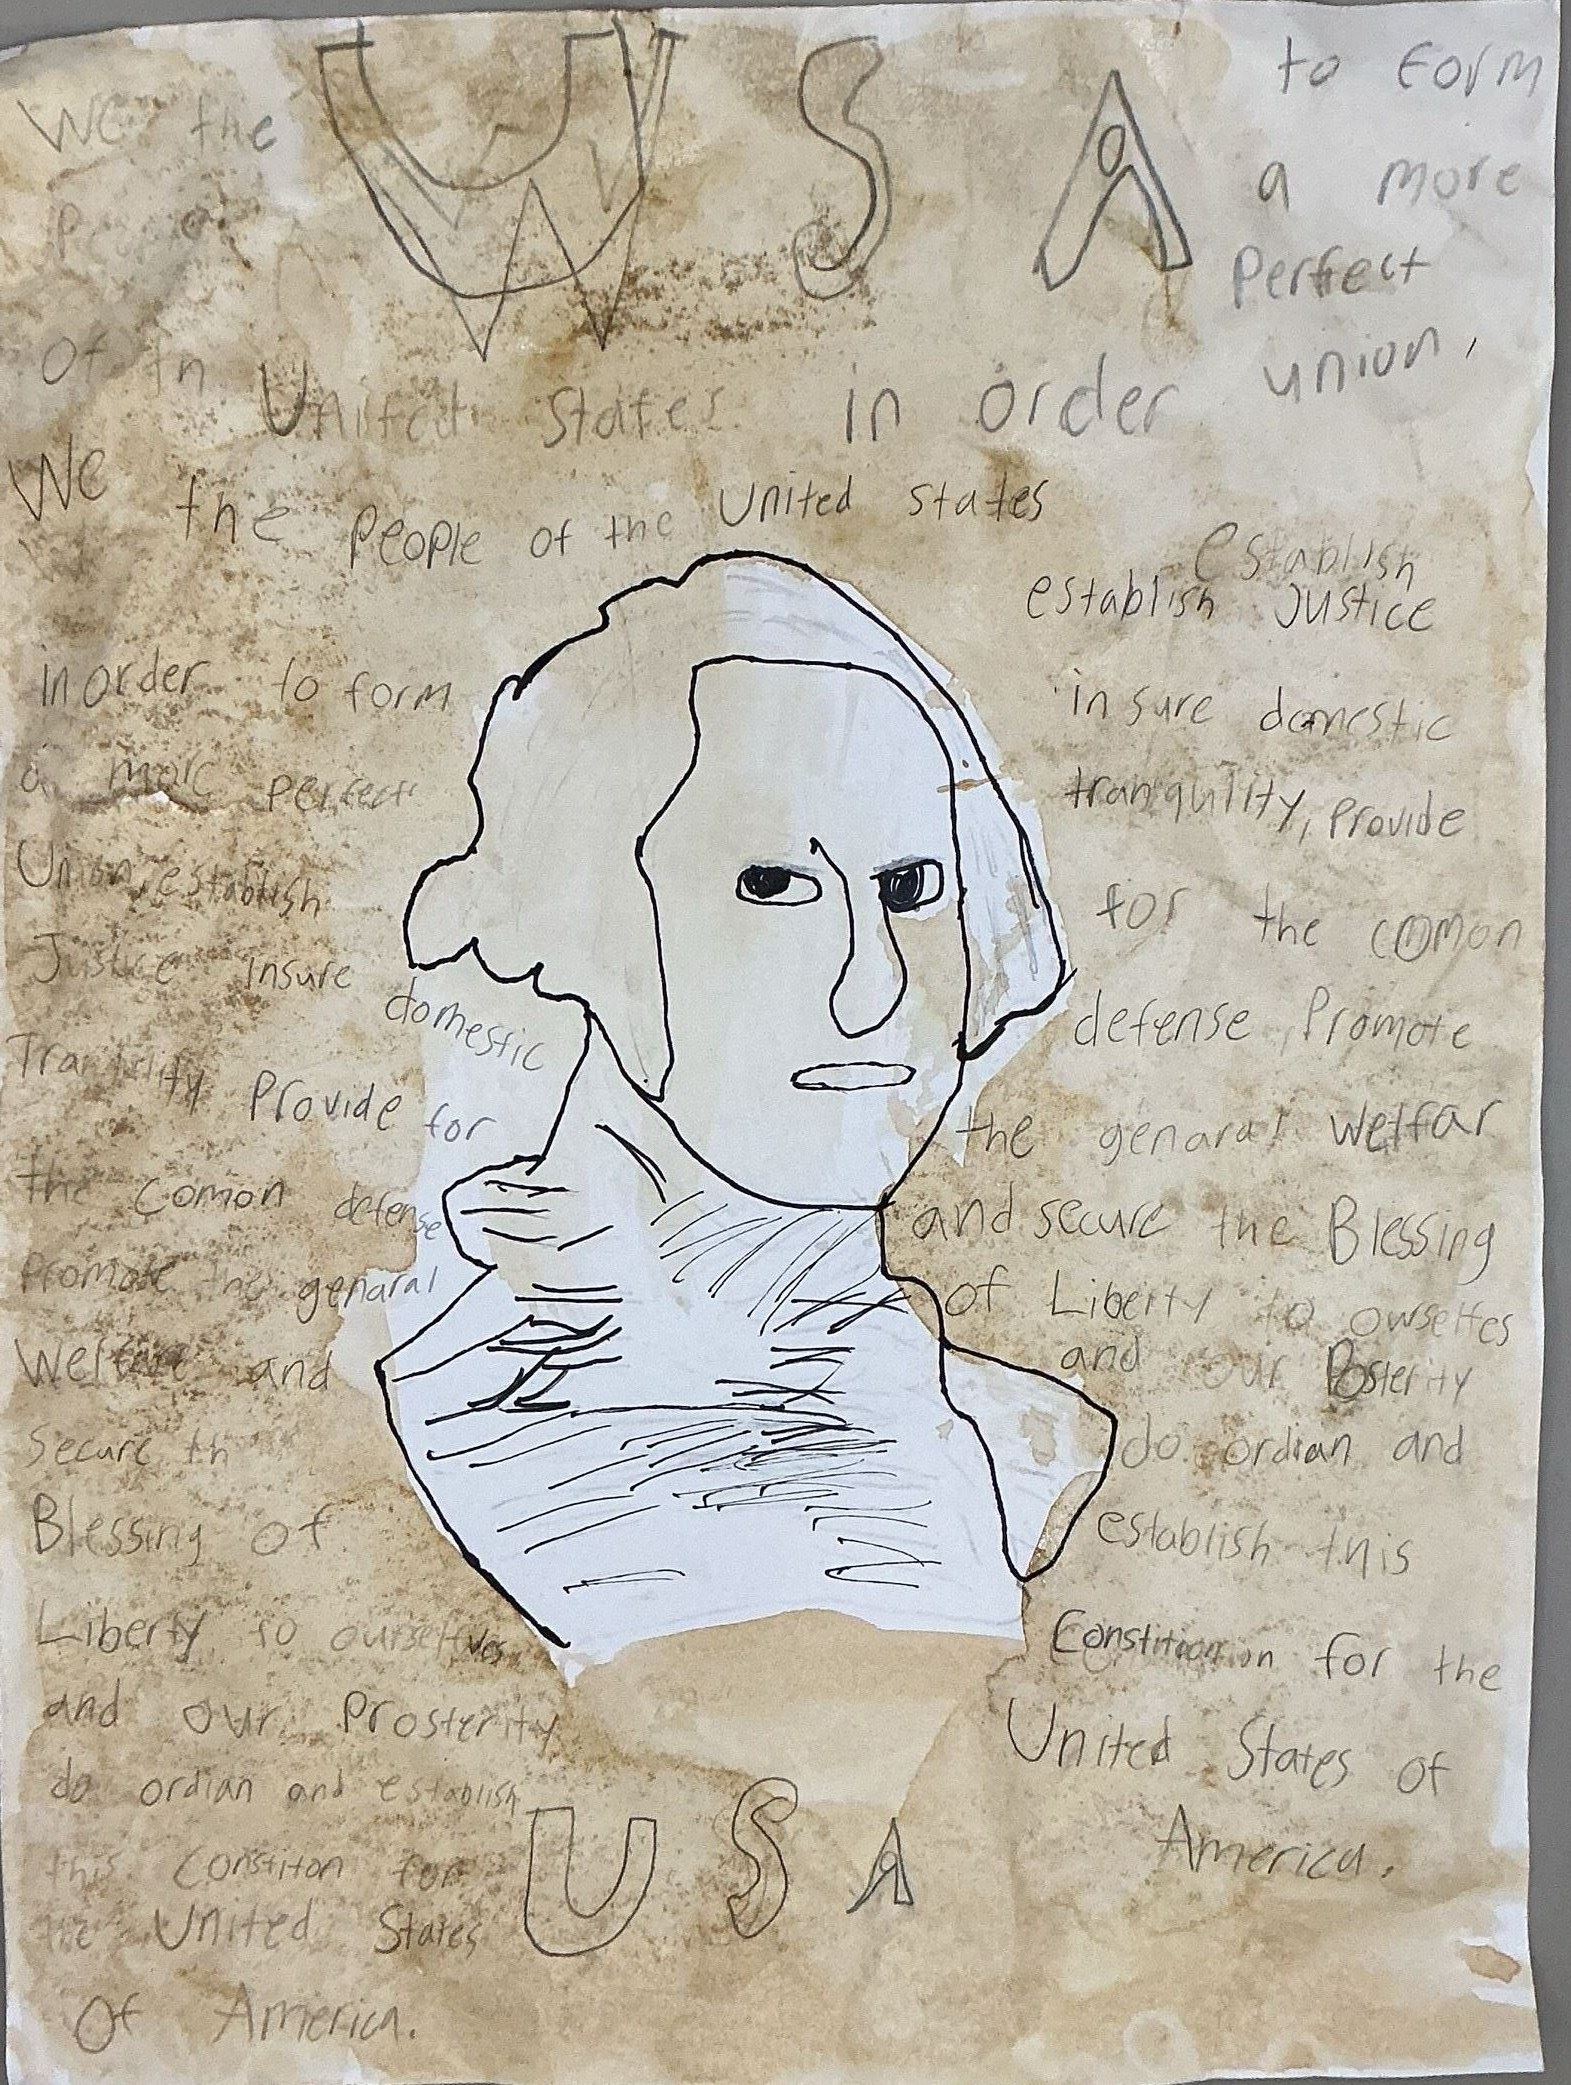 USA
We the
to form
a more
Perfect
union,
of
United States in order
We the People of the United States
in order to form
a more perfect
Union, establish
Justice insure domestic
Provide for
the comon defense
Promote the genaral
Welfare and
Secure th
Blessing of
Liberty to ourselfves
and our Prosterity
do ordian and establish
this Constiton for
the United States
of America.
establish
establish Justice
insure domestic
tranqulity, Provide
for the comon
defense, Promote
the genaral Welfar
and secure the Blessing
of Liberty to ourselfes
and our Posterity
do ordian and
establish this
for the
United States of
America.
USA